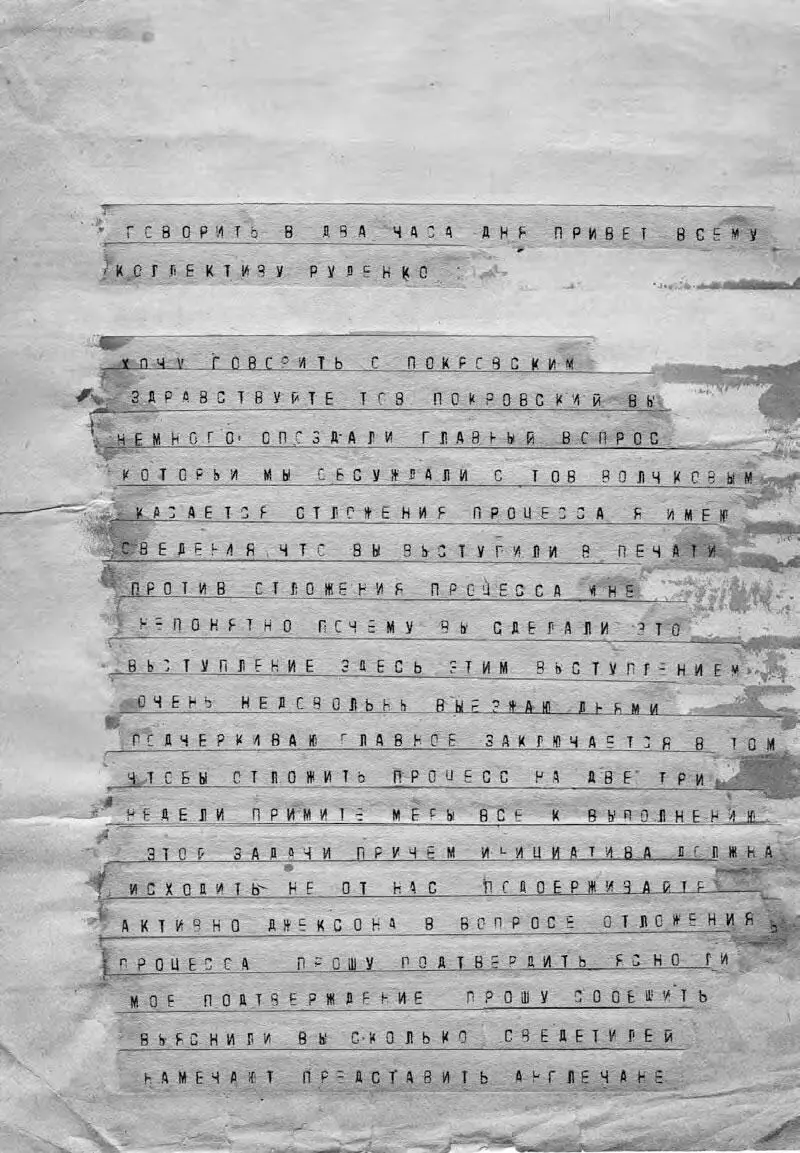 ГОВОРИТЬ В ДВА ЧАСА ДНЯ ПРИВЕТ ВСЕМУ
КОГЛЕКТИВУ РУДЕНКО
ХОЧУ ГОВОРИТЬ С ПОКРОВСКИМ
ЗДРАВСТВУЙТЕ ТОВ ПОКРОВСКИЙ ВЫ
НЕМНОГО ОПОЗДАЛИ ГЛАВНЫЙ ВОПРОС
КОТОРЫЙ МЫ ОБСУЖДАЛИ С ТОВ ВОЛЧКОВЫМ
КАСАЕТСЯ ОТЛОЖЕНИЯ ПРОЦЕССА Я ИМЕЮ
СВЕДЕНИЯ ЧТО ВЫ ВЫСТУПИЛИ В ПЕЧАТИ
ПРОТИВ ОТЛОЖЕНИЯ ПРОЦЕССА МНЕ
НЕПОНЯТНО ПОЧЕМУ ВЫ СДЕЛАЛИ ЭТО
ВЫСТУПЛЕНИЕ ЗДЕСЬ ЭТИМ ВЫСТУПЛЕНИЕМ
ОЧЕНЬ НЕДОВОЛЬНЫ ВЫЕЗЖАЮ ДНЯМИ
ПОДЧЕРКИВАЮ ГЛАВНОЕ ЗАКЛЮЧАЕТСЯ В ТОМ
ЧТОБЫ ОТЛОЖИТЬ ПРОЦЕСС НА ДВЕ ТРИ
НЕДЕЛИ ПРИМИТЕ МЕРЫ ВСЕ К ВЫПОЛНЕНИЮ
ЭТОЙ ЗАДАЧИ ПРИЧЕМ ИНИЦИАТИВА ДОЛЖНА
ИСХОДИТЬ НЕ ОТ НАС ПОДДЕРЖИВАЙТЕ
АКТИВНО ДЖЕКСОНА В ВОПРОСЕ ОТЛОЖЕНИЯ
ПРОЦЕССА ПРОШУ ПОДТВЕРДИТЬ ЯСНО ЛИ
МОЕ ПОДТВЕРЖДЕНИЕ ПРОШУ СООБЩИТЬ
ВЫЯСНИЛИ ВЫ СКОЛЬКО СВЕДЕТИЛЕЙ
НАМЕЧАЮТ ПРЕДСТАВИТЬ АНГЛЕЧАНЕ